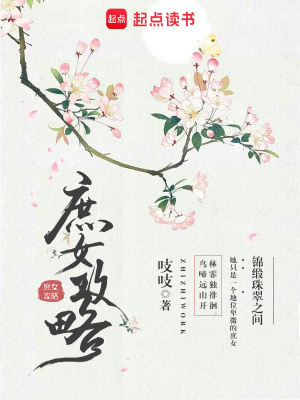 起点 起点读书
庶女攻略
庶女
攻略
吱吱◎著
ZHIZHIWORK
林霏独徘徊
鸟啼远山开
锦缎珠翠之间
她只是一个地位卑微的庶女